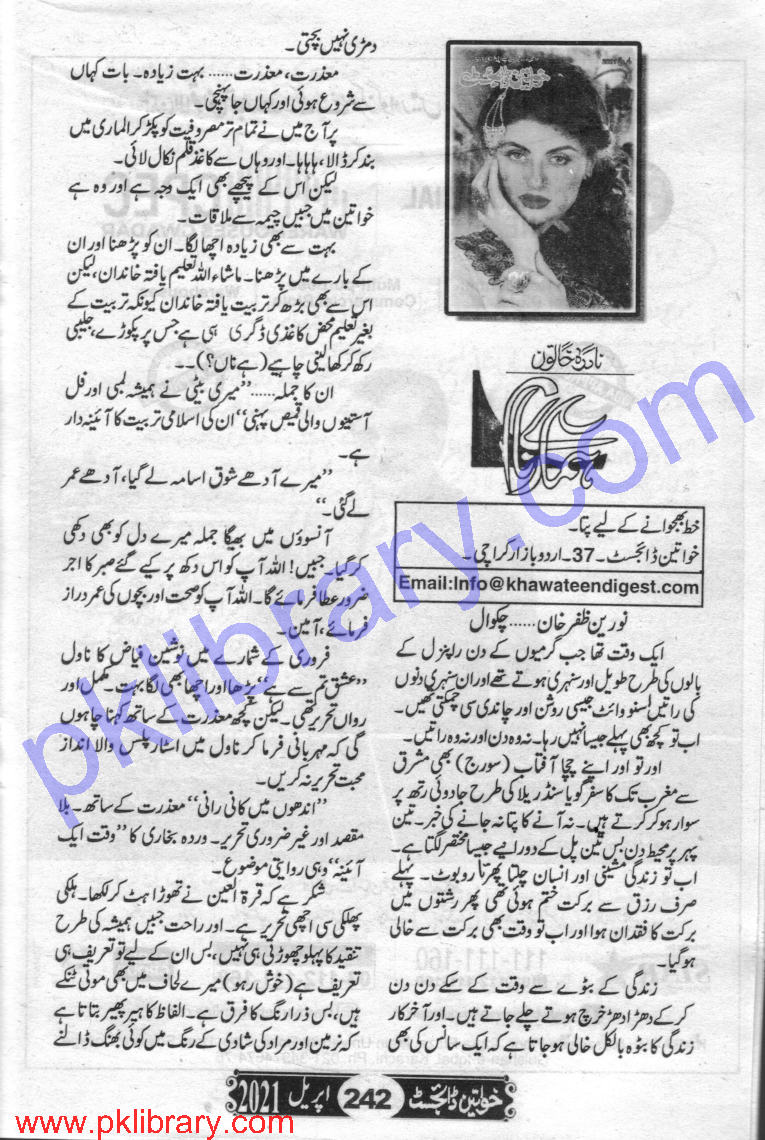 خواتین ڈائجسٹ
نادرہ خاتون
ہمارے نام
خط بھجوانے کے لیے پتا۔
خواتین ڈائجسٹ۔ 37۔ اردو بازار کراچی۔
Email:Info@khawateendigest.com
نورین ظفر خان...... چکوال
ایک وقت تھا جب گرمیوں کے دن راپنزل کے
بالوں کی طرح طویل اور سنہری ہوتے تھے اور ان سنہری دنوں
کی راتیں اسنو وائٹ جیسی روشن اور چاندی سی چمکتی تھیں۔
اب تو کچھ بھی پہلے جیسا نہیں رہا۔ نہ وہ دن اور نہ وہ راتیں۔
اور تو اور اپنے چچا آفتاب (سورج) بھی مشرق
سے مغرب تک کا سفر گویا سنڈریلا کی طرح جادوئی رتھ پر
سوار ہو کر کرتے ہیں۔ نہ آنے کا پتا نہ جانے کی خبر۔ تین
پہر پر محیط دن بس تین پل کے دورانیے جیسا مختصر لگتا ہے۔
اب تو زندگی مشینی اور انسان چلتا پھرتا روبوٹ۔ پہلے
صرف رزق سے برکت ختم ہوئی تھی پھر رشتوں میں
برکت کا فقدان ہوا اور اب تو وقت بھی برکت سے خالی
ہو گیا۔
زندگی کے بٹوے سے وقت کے سکے دن دن
کر کے دھڑا دھڑ خرچ ہوتے چلے جاتے ہیں۔ اور آخر کار
زندگی کا بٹوہ بالکل خالی ہو جاتا ہے کہ ایک سانس کی بھی
دمڑی نہیں بچتی۔
معذرت، معذرت...... بہت زیادہ۔ بات کہاں
سے شروع ہوئی اور کہاں جا پہنچی۔
پر آج میں نے تمام تر مصروفیت کو پکڑ کر الماری میں
بند کر ڈالا، ہاہاہا۔ اور وہاں سے کاغذ قلم نکال لائی۔
لیکن اس کے پیچھے بھی ایک وجہ ہے اور وہ ہے
خواتین میں جبیں چیمہ سے ملاقات۔
بہت سے بھی زیادہ اچھا لگا۔ ان کو پڑھنا اور ان
کے بارے میں پڑھنا۔ ماشاء اللہ تعلیم یافتہ خاندان، لیکن
اس سے بھی بڑھ کر تربیت یافتہ خاندان کیونکہ تربیت کے
بغیر تعلیم محض کاغذی ڈگری ہی ہے جس پر پکوڑے، جلیبی
رکھ کر کھا لینی چاہیے (ہے ناں؟)۔۔
ان کا جملہ...... ”میری بیٹی نے ہمیشہ لمبی اور فل
آستینوں والی قمیص پہنی“ ان کی اسلامی تربیت کا آئینہ دار
ہے۔
”میرے آدھے شوق اسامہ لے گیا، آدھے عمر
لے گئی۔“
آنسوؤں میں بھیگا جملہ میرے دل کو بھی دکھی
کر گیا۔ جبیں! اللہ آپ کو اس دکھ پر کیے گئے صبر کا اجر
ضرور عطا فرمائے گا۔ اللہ آپ کو صحت اور بچوں کی عمر دراز
فرمائے، آمین۔
فروری کے شمارے میں نوشین فیاض کا ناول
”عشق تم سے ہے“ پڑھا اور اچھا بھی لگا بہت۔ مکمل اور
رواں تحریر تھی۔ لیکن کچھ معذرت کے ساتھ کہنا چاہوں
گی کہ مہربانی فرما کر ناول میں اسٹار پلس والا انداز
محبت تحریر نہ کریں۔
”اندھوں میں کانی رانی“ معذرت کے ساتھ۔ بلا
مقصد اور غیر ضروری تحریر۔ وردہ بخاری کا ”وقت ایک
آئینہ“ وہی روایتی موضوع۔
شکر ہے کہ قرۃ العین نے تھوڑا ہٹ کر لکھا۔ ہلکی
پھلکی سی اچھی تحریر ہے۔ اور راحت جبیں ہمیشہ کی طرح
تنقید کا پہلو چھوڑتی ہی نہیں، بس ان کے لیے تو تعریف ہی
تعریف ہے (خوش رہو) میرے لحاف میں بھی موتی ٹنکے
ہیں، بس ذرا رنگ کا فرق ہے۔ الفاظ کا ہیر پھیر بتاتا ہے
کہ زمین اور مراد کی شادی کے رنگ میں کوئی بھنگ ڈالنے
خواتین ڈائجسٹ 242 اپریل 2021
www.pklibrary.com
pklibrary.com